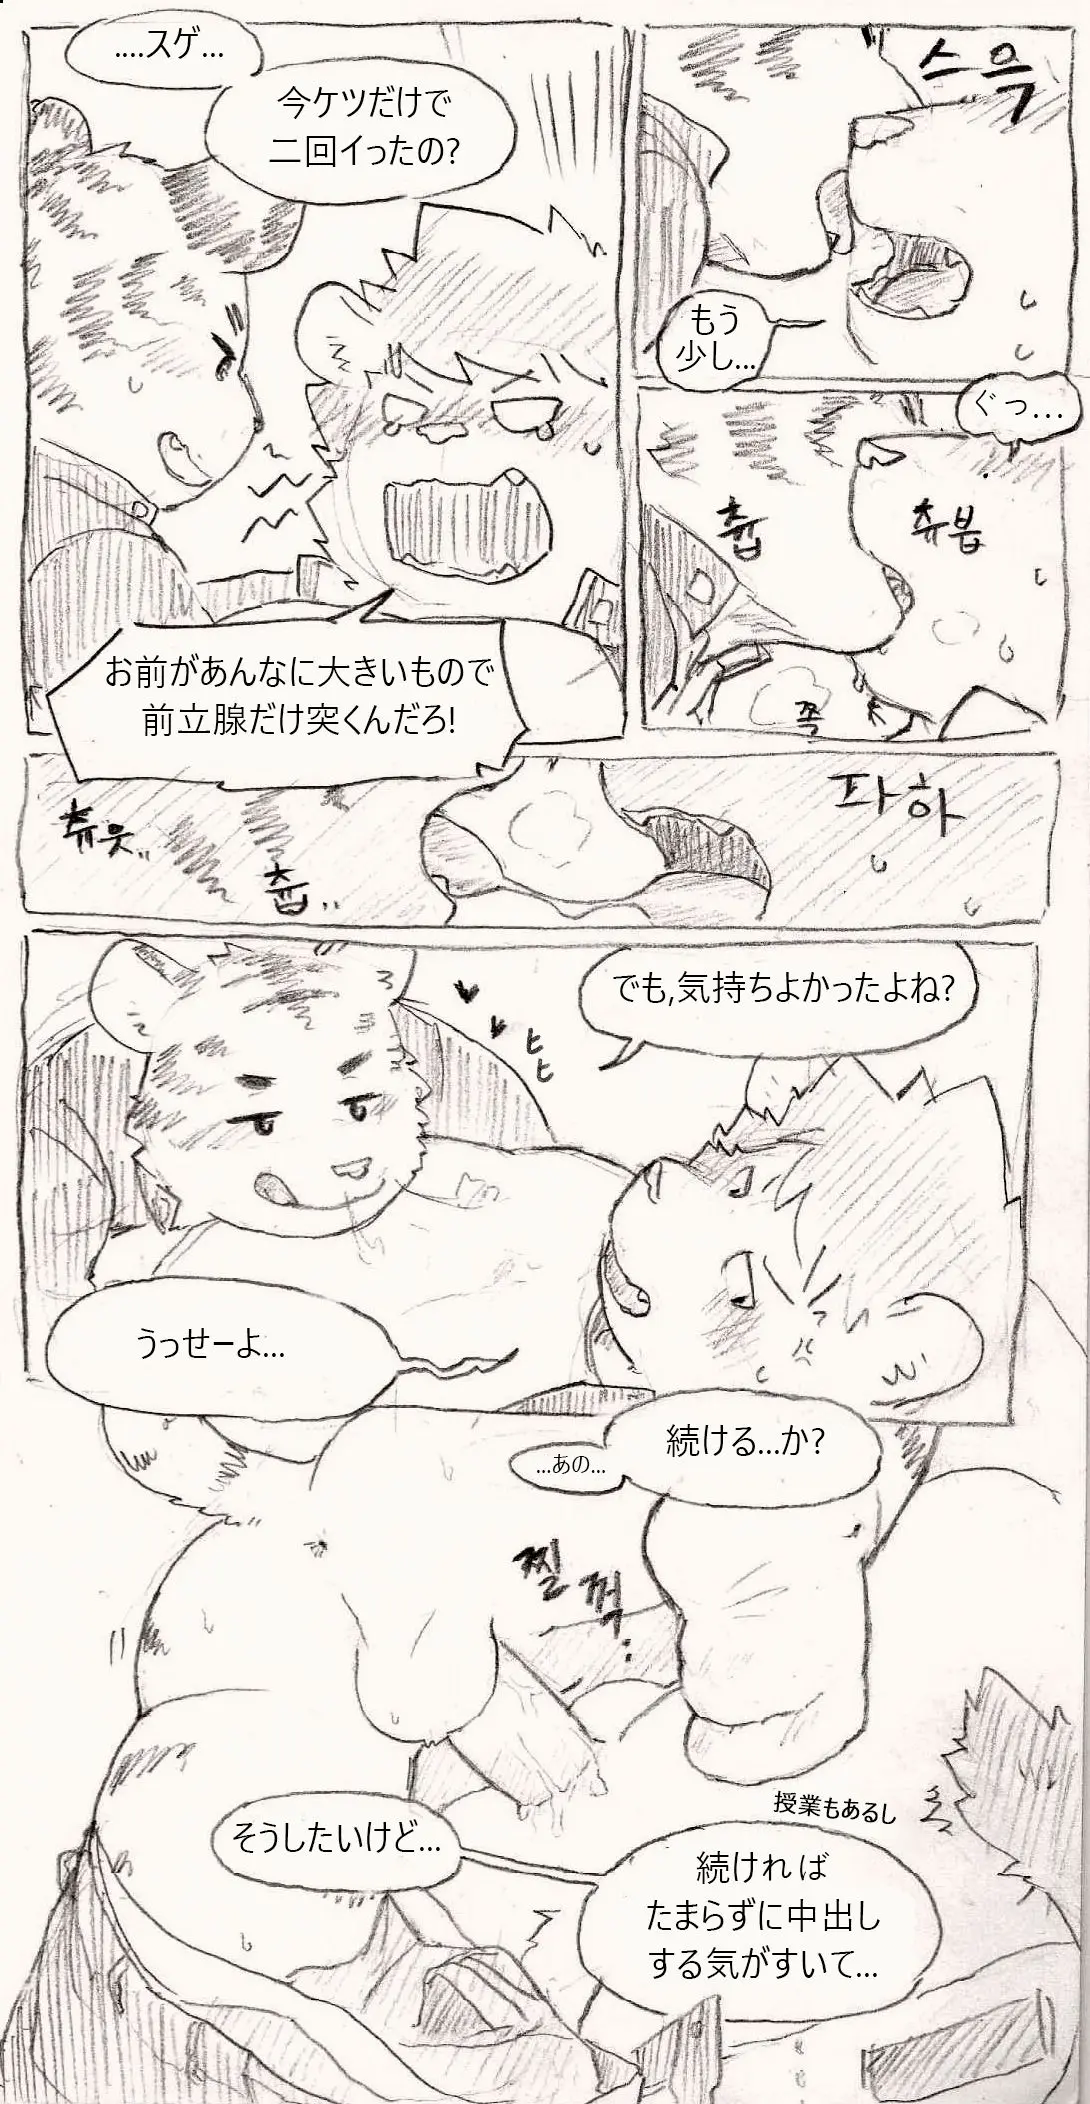 ....スゲ...
今ケツだけで
二回イったの?
お前があんなに大きいもので
前立腺だけ突くんだろ!
스윽
もう
少し...
ぐっ...
츄웁
츄붑
쪽
츄웃..
츄웁..
파하
でも,気持ちよかったよね?
ヒヒ
うっせーよ...
...あの...
続ける...か?
찔꺽...
そうしたいけど...
授業もあるし
続ければ
たまらずに中出し
する気がすいて...